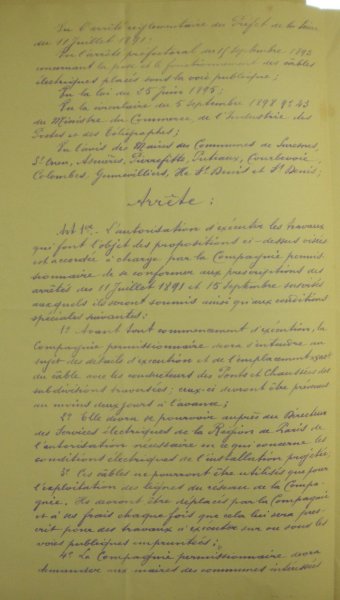 Vu l'arrêté réglementaire du Préfet de la Seine
du 11 Juillet 1891;
Vu l'arrêté préfectoral du 15 Septembre 1893
concernant la pose et le fonctionnement des câbles
électriques placés sous la voie publique;
Vu la loi du 25 Juin 1895;
Vu la circulaire du 5 Septembre 1898 N° 43
du Ministre du Commerce, de l'Industrie des
Postes et des Télégraphes;
Vu l'avis des Maires des Communes de Suresnes,
St Ouen, Asnières, Pierrefitte, Puteaux, Courbevoie,
Colombes, Gennevilliers, Ile St Denis et St Denis;
Arrête:
Art 1er.- L'autorisation d'exécuter les travaux
qui font l'objet des propositions ci-dessus visées
est accordée à charge par la Compagnie permis-
sionnaire de se conformer aux prescriptions des
arrêtés des 11 Juillet 1891 et 15 Septembre susvisés
auxquels ils seront soumis ainsi qu'aux conditions
spéciales suivantes:
1° Avant tout commencement d'exécution, la
Compagnie permissionnaire devra s'entendre au
sujet des détails d'exécution et de l'emplacement exact
du câble avec les conducteurs des Ponts et Chaussées des
subdivisions traversées; ceux-ci devront être prévenus
au moins deux jours à l'avance;
2° Elle devra se pourvoir auprès du Directeur
des Services électriques de la Région de Paris de
l'autorisation nécessaire en ce qui concerne les
conditions électriques de l'installation projetée;
3° Les câbles ne pourront être utilisés que pour
l'exploitation des lignes du réseau de la Compa-
gnie. Ils devront être déplacés par la Compagnie
et à ses frais chaque fois que cela lui sera pres-
crit pour des travaux à exécuter sur ou sous les
voies publiques empruntées;
4° La Compagnie permissionnaire devra
demander aux maires des communes intéressées